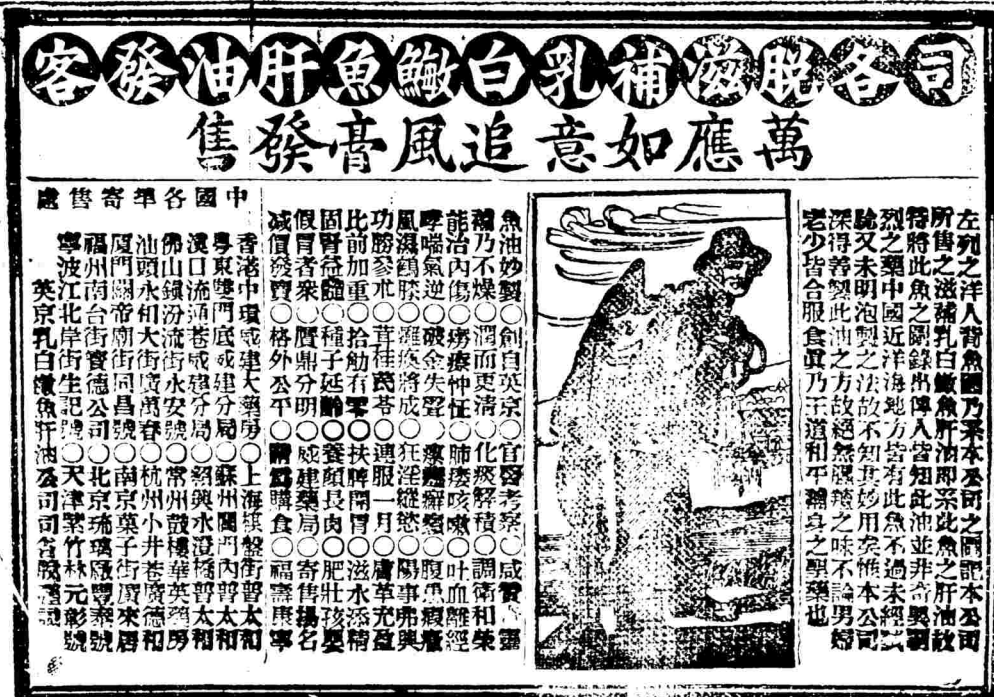 司各脫滋補乳白鰵魚肝油發客
萬應如意追風膏發售
左列之洋人背魚圖乃系本公司之圖記本公司
所售之滋補乳白鰵魚肝油即系取此魚之肝油故
特將此魚之圖錄出俾人皆知此油並非奇異
烈之藥中國近洋海地方皆有此魚不過未經試
驗又未明泡製之法故不知其妙用矣惟本公司
深得善製此油之方故絕無腥羶之味不論男婦
老少皆合服食真乃王道和平補身之聖藥也
魚油妙製○創自英京○官醫考察○咸贊靈
補乃不燥○潤而更清○化痰解積○調衛和榮
能治內傷○癆瘵怔忡○肺痿咳嗽○吐血離經
哮喘氣逆○破金失聲○癬癩○腹患
風濕鶴膝○癱瘓將成○狂淫縱慾○陽事弗興
功勝參朮○茸桂芪苓○連服一月○膚革充盈
比前加重○拾觔有零○扶脾開胃○滋水添精
固腎益髓○種子延齡○養顏長肉○肥壯孩嬰
假冒者眾○贋鼎分明○威建藥局○寄售揚名
減價發賣○格外公平○購食○福壽康寧
中國各埠寄售處
香港中環威建大藥房○上海棋盤街普太和
粵東雙門底威建分局○蘇州閶門內普太和
漢口流通巷威建分局○紹興水澄橋普太和
佛山鎮汾流街永安號○常州鼓樓華英藥房
汕頭永和大街廣萬春○杭州小井巷廣德和
廈門關帝廟街同昌號○南京菓子街廣來居
福州南台街寶德公司○北京琉璃廠豐泰號
寧波江北岸街生記號○天津紫竹林元彰號
英京乳白鰵魚肝油公司司各脫謹識